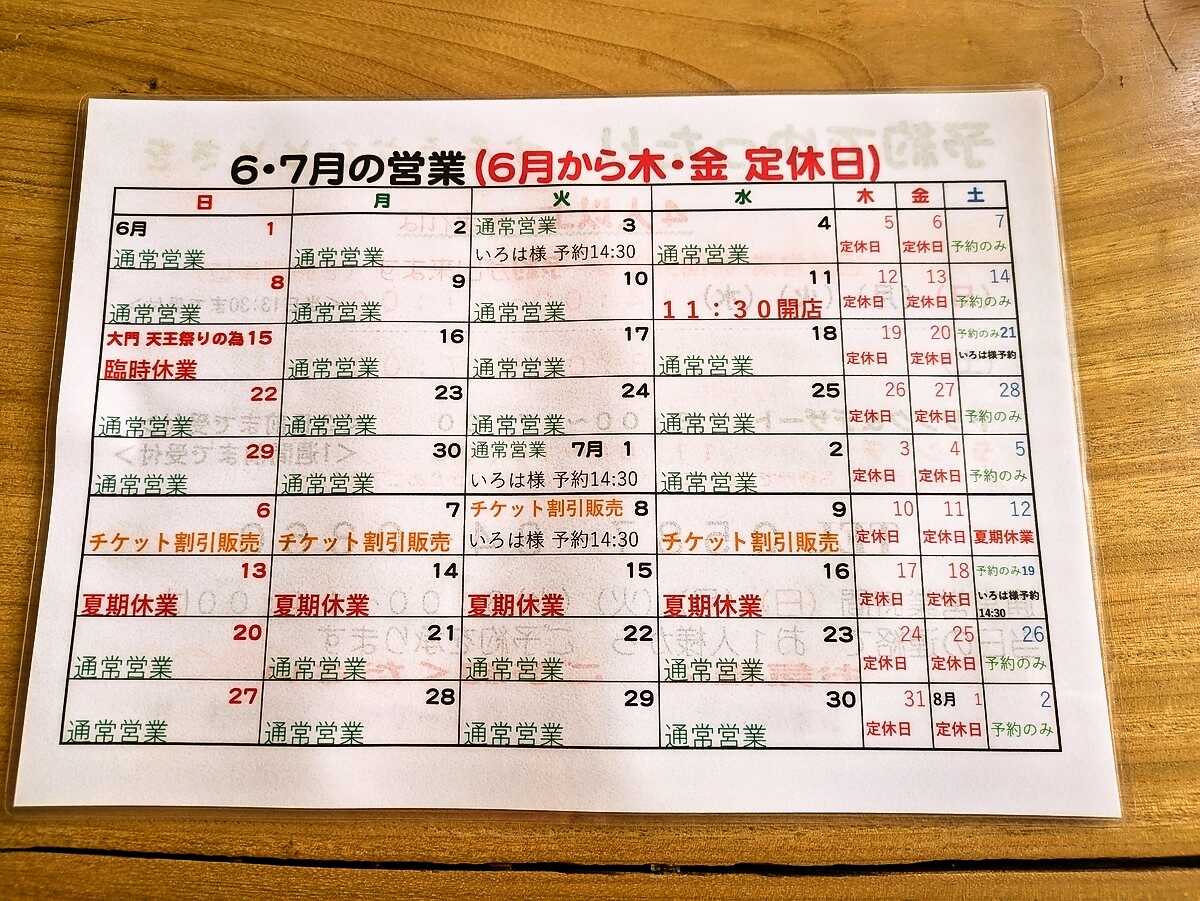 6・7月の営業(6月から木・金 定休日)
日 月 火 水 木 金 土
6月 1 2 通常営業 3 4 5 6 7
通常営業 通常営業 いろは様 予約14:30 通常営業 定休日 定休日 予約のみ
8 9 10 11 12 13 14
通常営業 通常営業 通常営業 11:30開店 定休日 定休日 予約のみ
大門 天王祭りの為 15 16 17 18 19 20 予約のみ21
臨時休業 通常営業 通常営業 通常営業 定休日 定休日 いろは様予約
22 23 24 25 26 27 28
通常営業 通常営業 通常営業 通常営業 定休日 定休日 予約のみ
29 30 通常営業 7月 1 2 3 4 5
通常営業 通常営業 いろは様 予約14:30 通常営業 定休日 定休日 予約のみ
6 7 チケット割引販売 8 9 10 11 12
チケット割引販売 チケット割引販売 いろは様 予約14:30 チケット割引販売 定休日 定休日 夏期休業
13 14 15 16 17 18 予約のみ19
夏期休業 夏期休業 夏期休業 夏期休業 定休日 定休日 いろは様予約
14:30
20 21 22 23 24 25 26
通常営業 通常営業 通常営業 通常営業 定休日 定休日 予約のみ
27 28 29 30 31 8月 1 2
通常営業 通常営業 通常営業 通常営業 定休日 定休日 予約のみ